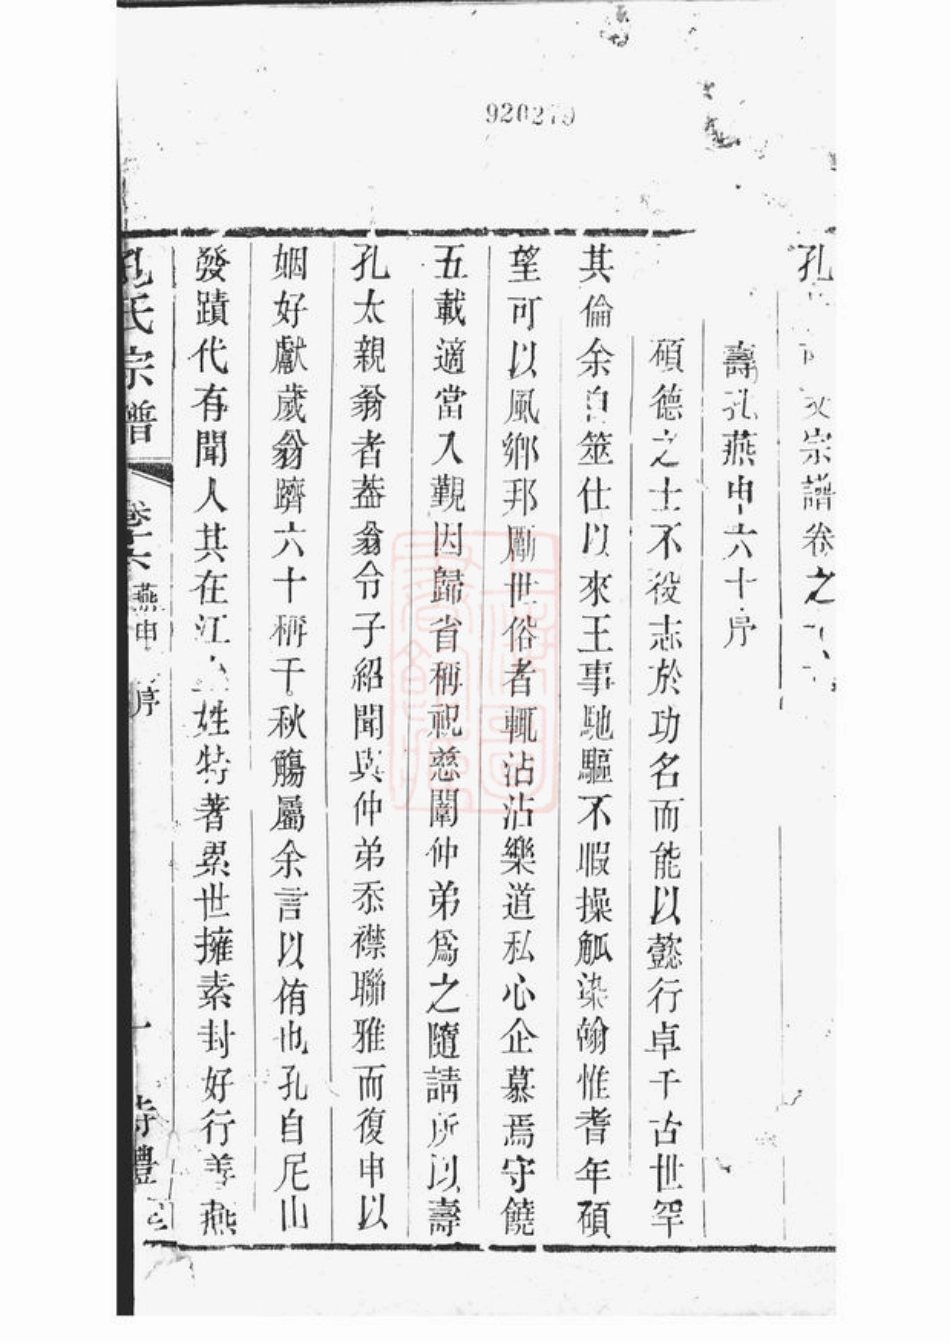 920279
孔 文宗譜卷之
壽孔燕申六十序
碩德之士不役志於功名而能以懿行卓千古世罕
其倫余自筮仕以來王事馳驅不暇操觚染翰惟耆年碩
望可以風鄉邦勵世俗者輒沾沾樂道私心企慕焉守饒
五載適當入覲因歸省稱祝慈闈仲弟為之隨請所以壽
孔太親翁者葢翁令子紹聞與仲弟忝襟聯雅而復申以
姻好獻歲翁躋六十稱千秋觴屬余言以侑也孔自尼山
發蹟代有聞人其在江 姓特著累世擁素封好行善燕
孔氏宗譜 卷之六 燕申 序 一 詩禮